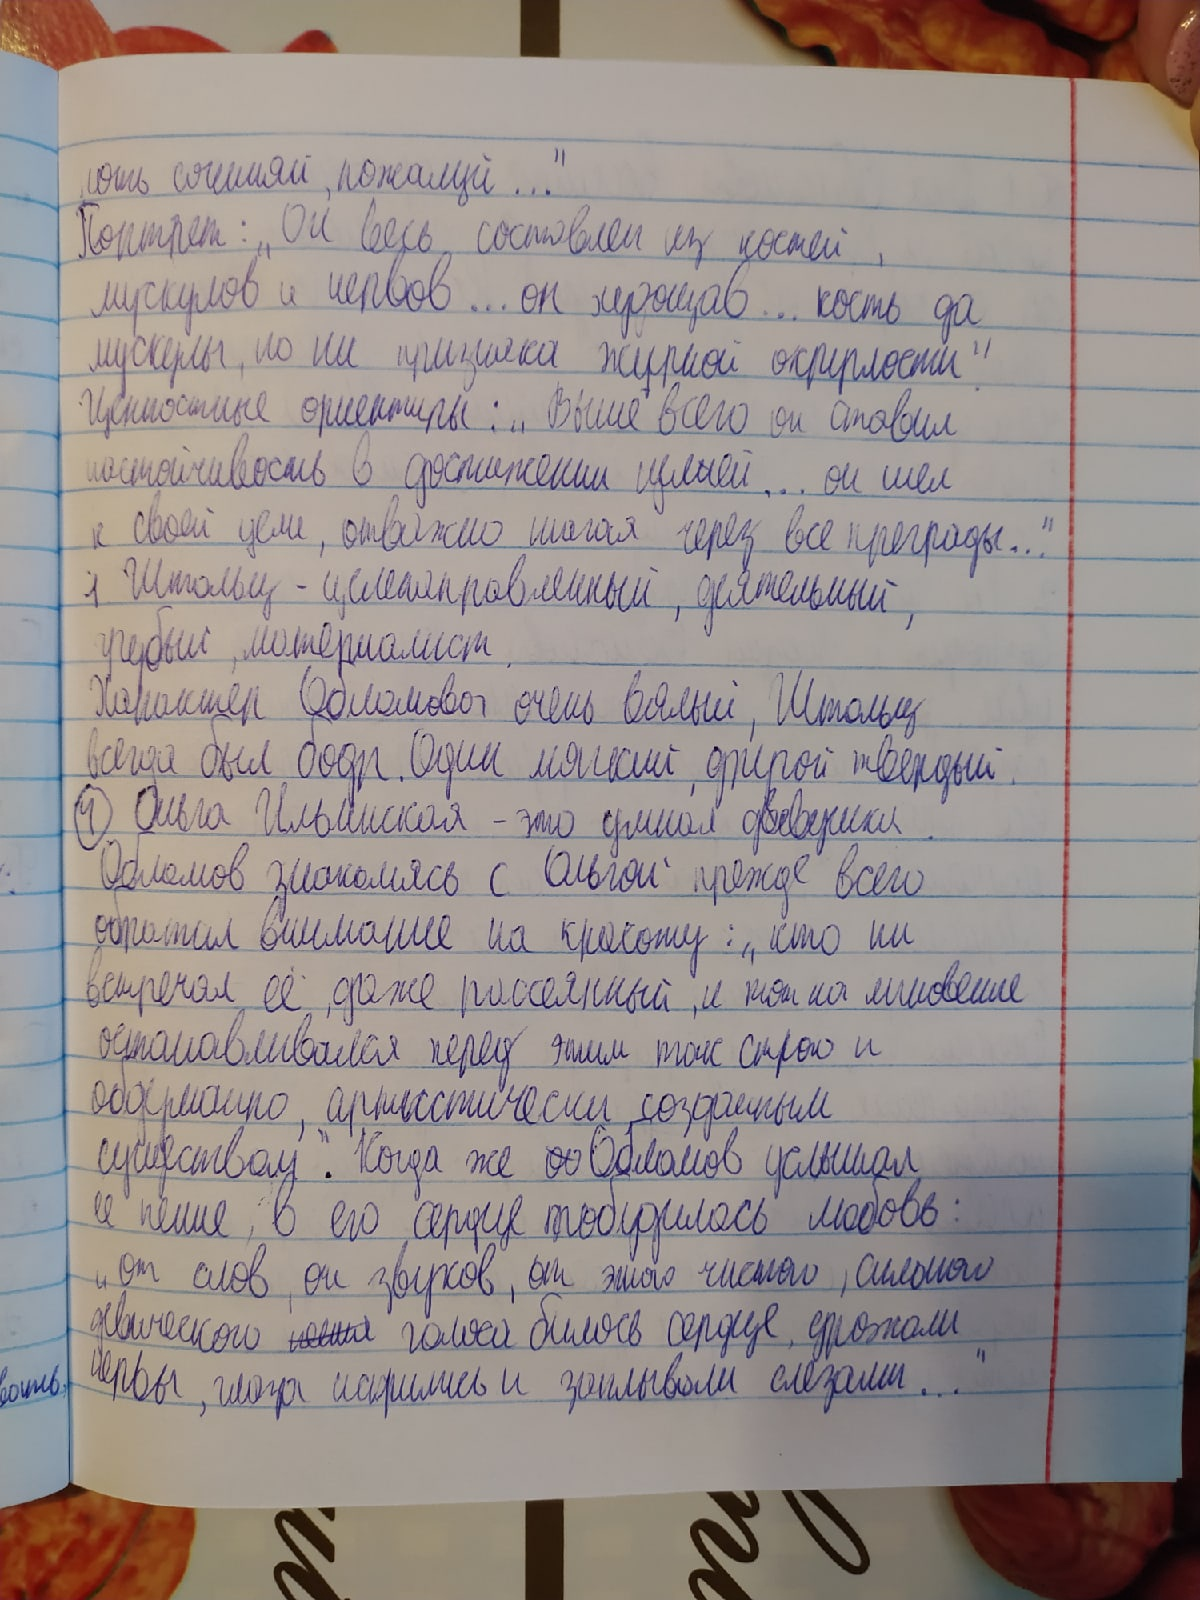 хоть сочиняй, пожалуй..."
Портрет: „Он весь составлен из костей,
мускулов и нервов... он худощав... кость да
мускулы, но ни признака жирной округлости"
Ценностные ориентиры: „Выше всего он ставил
настойчивость в достижении целей... он шел
к своей цели, отважно шагая через все преграды..."
Штольц - целенаправленный, деятельный,
грубый, материалист.
Характер Обломова очень вялый, Штольц
всегда был бодр. Один мягкий, другой твердый.
Ольга Ильинская - это умная
Обломов знакомясь с Ольгой прежде всего
обратил внимание на красоту: „кто ни
встречал её, даже рассеянный, и тот на мгновение
останавливался перед этим так строго и
обдуманно, артистически созданным
существом". Когда же Обломов услышал
ее пение, в его сердце любовь:
„от слов, от звуков, от этого чистого, сильного
девического голоса билось сердце, дрожали
нервы, глаза искрились и заплывали слезами..."